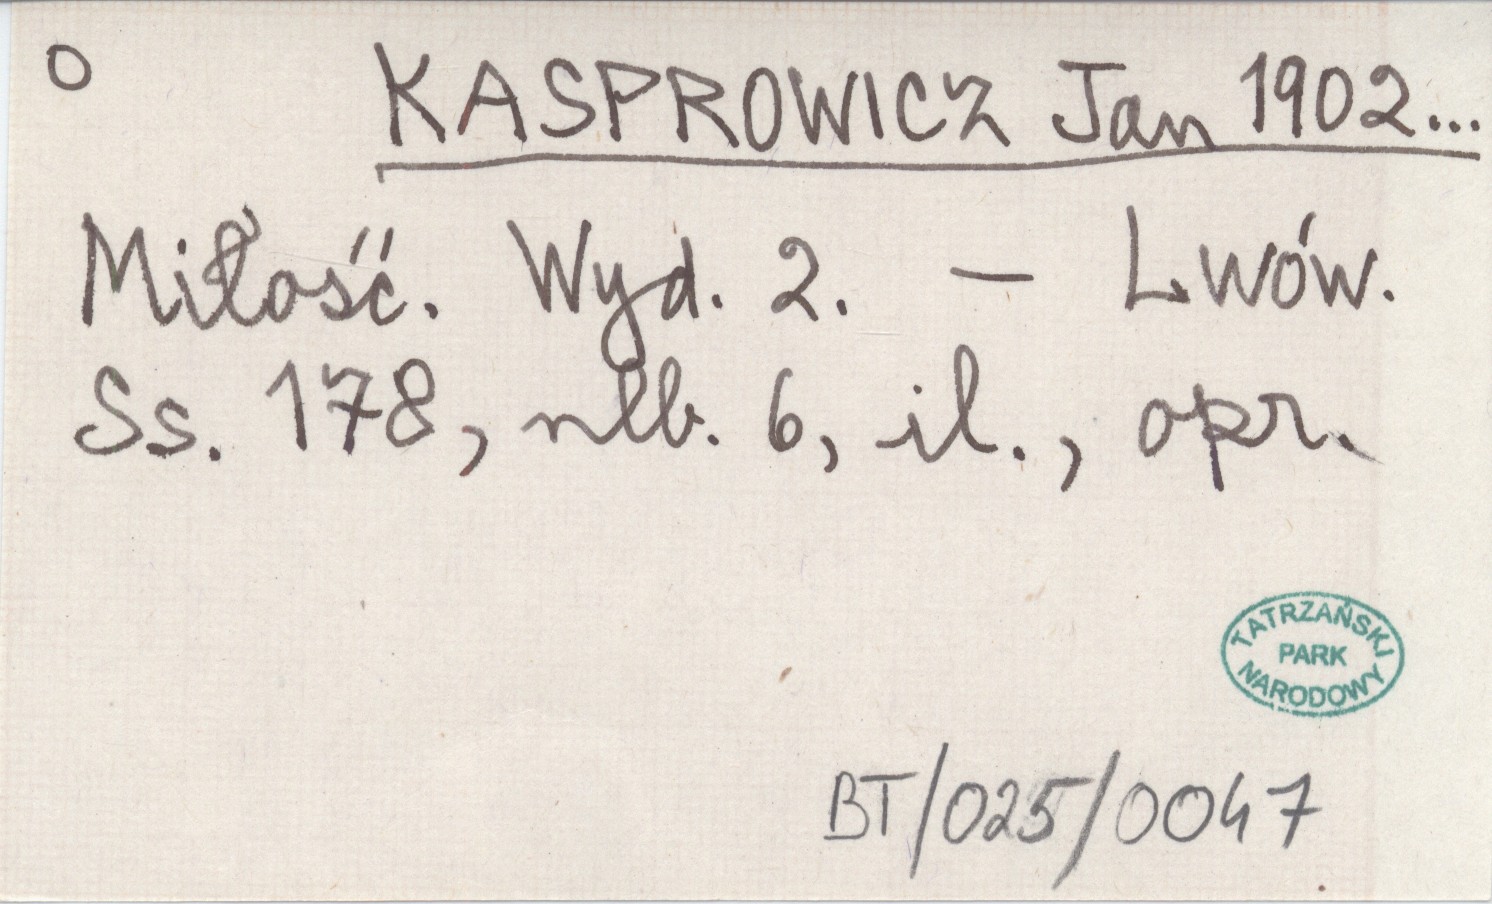 O KASPROWICZ Jan 1902...
Miłość. Wyd. 2. — Lwów.
Ss. 178, nlb. 6, il., opr.
TATRZAŃSKI
PARK
NARODOWY
BT/025/0047